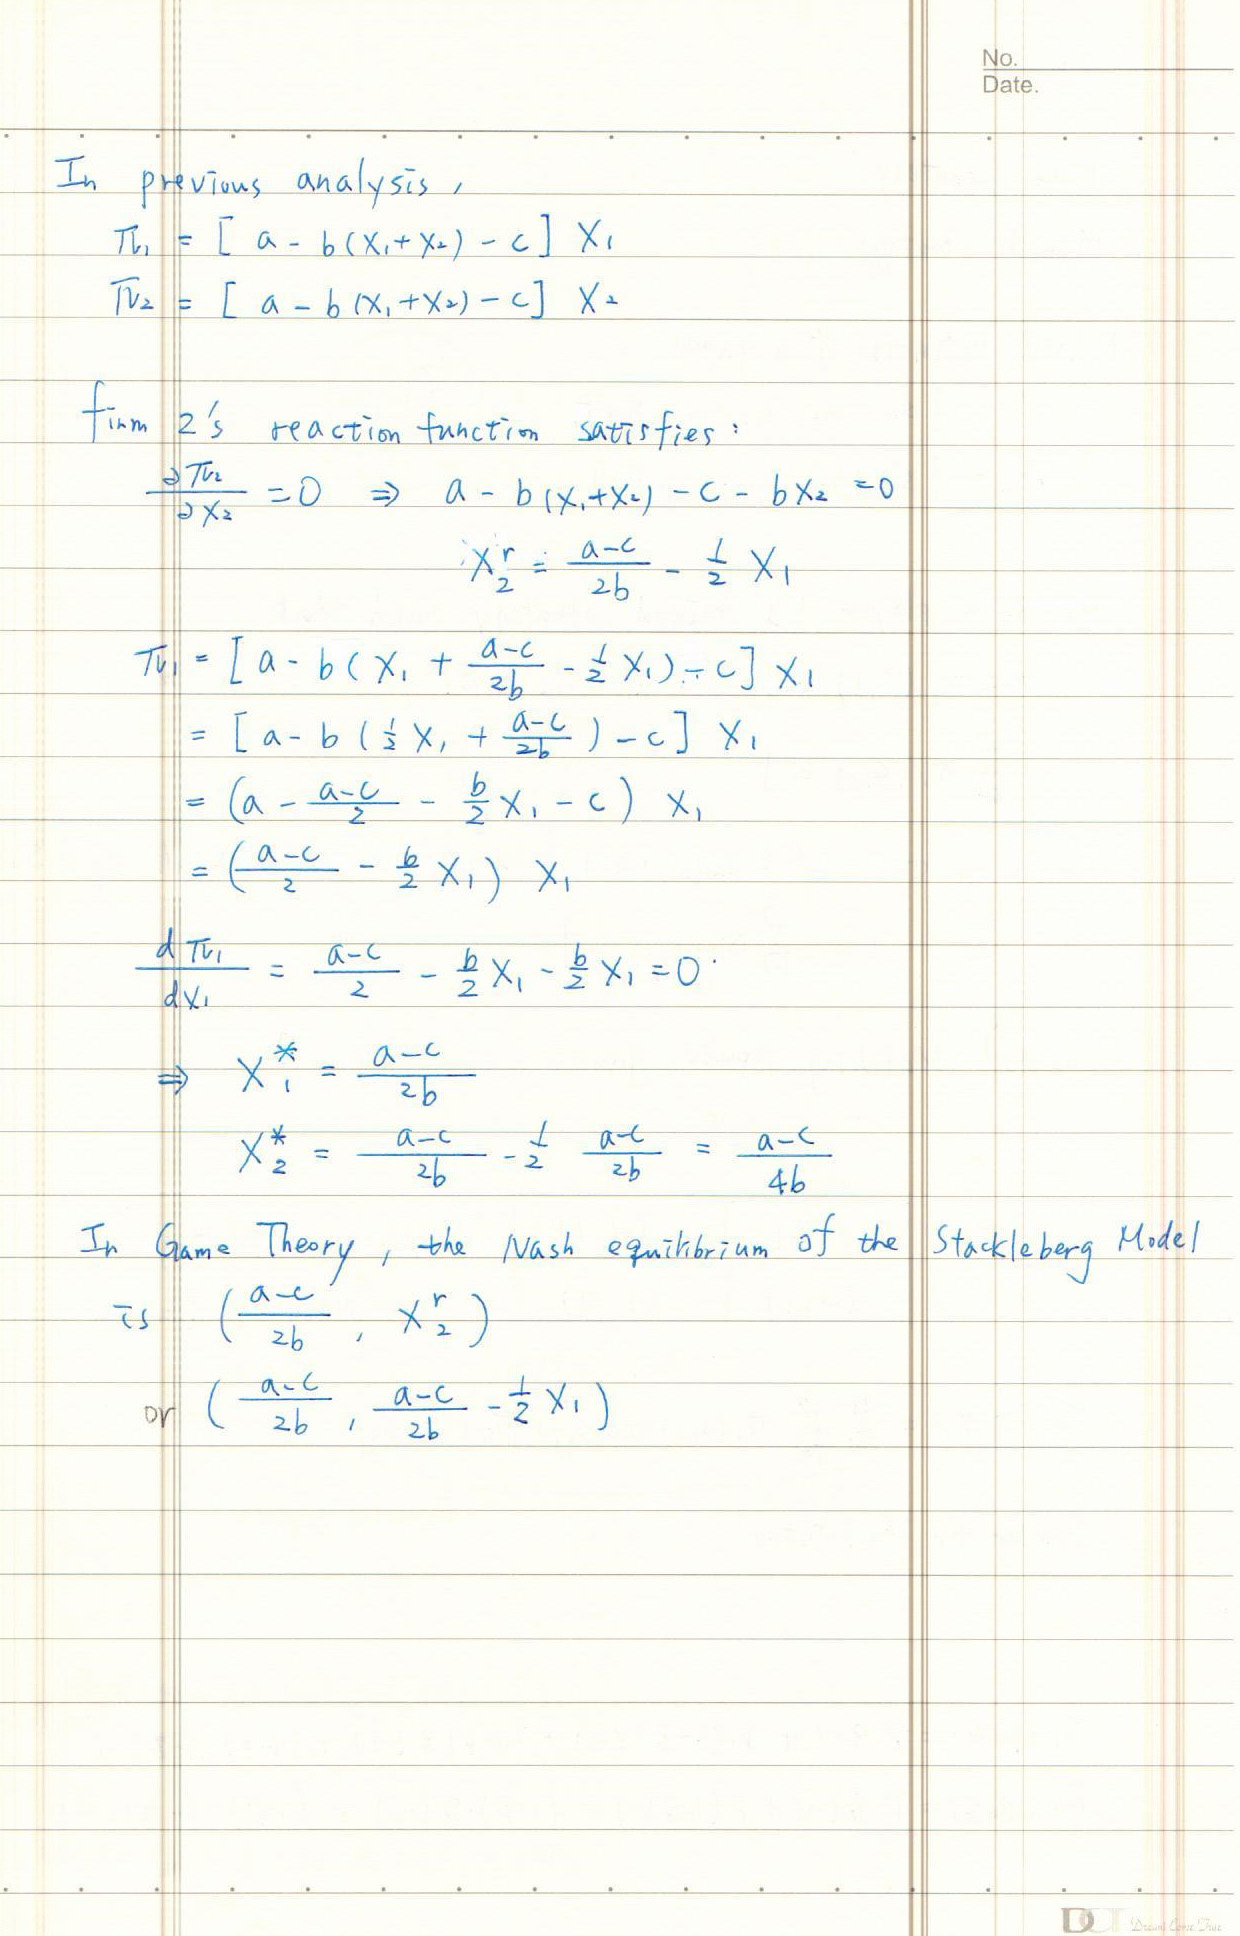 No.
Date.
In previous analysis,
π₁ = [ a - b(X₁+X₂) - c ] X₁
π₂ = [ a - b(X₁+X₂) - c ] X₂
firm 2's reaction function satisfies:
∂π₂/∂X₂ = 0 ⇒ a - b(X₁+X₂) - c - bX₂ = 0
X₂ʳ = (a-c)/2b - 1/2 X₁
π₁ = [ a - b( X₁ + (a-c)/2b - 1/2 X₁) - c ] X₁
= [ a - b ( 1/2 X₁ + (a-c)/2b ) - c ] X₁
= (a - (a-c)/2 - b/2 X₁ - c ) X₁
= ((a-c)/2 - b/2 X₁) X₁
dπ₁/dX₁ = (a-c)/2 - b/2 X₁ - b/2 X₁ = 0
⇒ X₁* = (a-c)/2b
X₂* = (a-c)/2b - 1/2 (a-c)/2b = (a-c)/4b
In Game Theory, the Nash equilibrium of the Stackleberg Model
is ((a-c)/2b, X₂ʳ)
or ((a-c)/2b, (a-c)/2b - 1/2 X₁)
Dream Come True